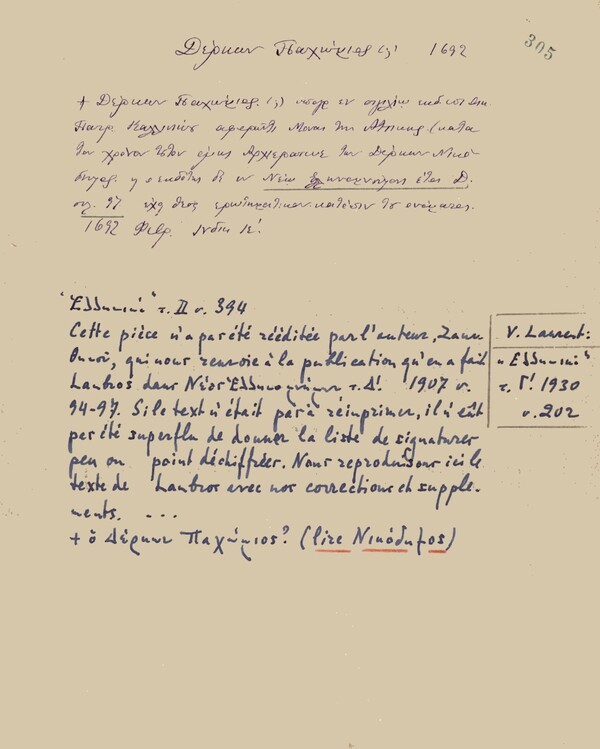 305
Δέρκων Παχώμιος (;) 1692
+ Δέρκων Παχώμιος (;) υπογρ εν
Πατρ. Καλλινίκου Μονας της Αττικης (κατα
τον χρόνον τουτον Αρχιεράτευε των Δέρκων Νικό
δημος η ο εκδότης δε εν Νέω Ελληνομνήμονι έτος Δ.
σελ. 97
1692 Φεβρ. Ινδικ. ΙΕ!
"Ἑλληνικά" τ. II σ. 394
Cette pièce n'a pas été rééditée par l'auteur,
qui nous renvoie à la publication qu'en a fait
Lambros dans Νέος Ἑλληνομνήμων τ. Δ! 1907 σ.
94-97. Si le text n'était pas à réinprimer, il n'eût
pas été superflu de donner la liste de signatures
peu ou point déchiffrées. Nous reproduisons ici le
texte de Lambros avec nos corrections et supple-
ments. ...
+ ὁ Δέρκων Παχώμιος? (lire Νικόδημος)
V. Laurent:
"Ἑλληνικά"
τ. Γ! 1930
σ. 202